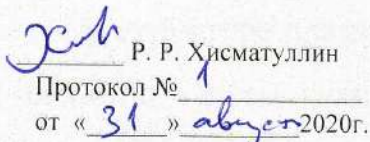 Р. Р. Хисматуллин
Протокол № 1
от « 31 » август 2020г.